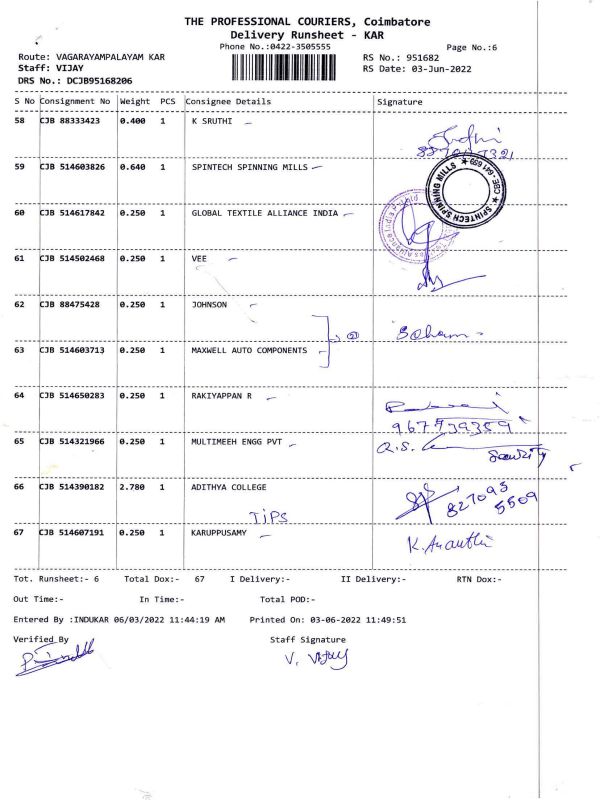 THE PROFESSIONAL COURIERS, Coimbatore
Delivery Runsheet - KAR
Phone No.:0422-3505555
Page No.:6
Route: VAGARAYAMPALAYAM KAR
RS No.: 951682
Staff: VIJAY
RS Date: 03-Jun-2022
DRS No.: DCJB95168206
S No Consignment No Weight PCS Consignee Details Signature
58 CJB 88333423 0.400 1 K SRUTHI
59 CJB 514603826 0.640 1 SPINTECH SPINNING MILLS
SPINTECH SPINNING MILLS
60 CJB 514617842 0.250 1 GLOBAL TEXTILE ALLIANCE INDIA
61 CJB 514502468 0.250 1 VEE
62 CJB 88475428 0.250 1 JOHNSON
63 CJB 514603713 0.250 1 MAXWELL AUTO COMPONENTS
64 CJB 514650283 0.250 1 RAKIYAPPAN R
65 CJB 514321966 0.250 1 MULTIMEEH ENGG PVT
66 CJB 514390182 2.780 1 ADITHYA COLLEGE
TIPS
827093
5509
67 CJB 514607191 0.250 1 KARUPPUSAMY
K. Ananthi
Tot. Runsheet:- 6 Total Dox:- 67 I Delivery:- II Delivery:- RTN Dox:-
Out Time:- In Time:- Total POD:-
Entered By :INDUKAR 06/03/2022 11:44:19 AM Printed On: 03-06-2022 11:49:51
Verified By Staff Signature
V. Vijay